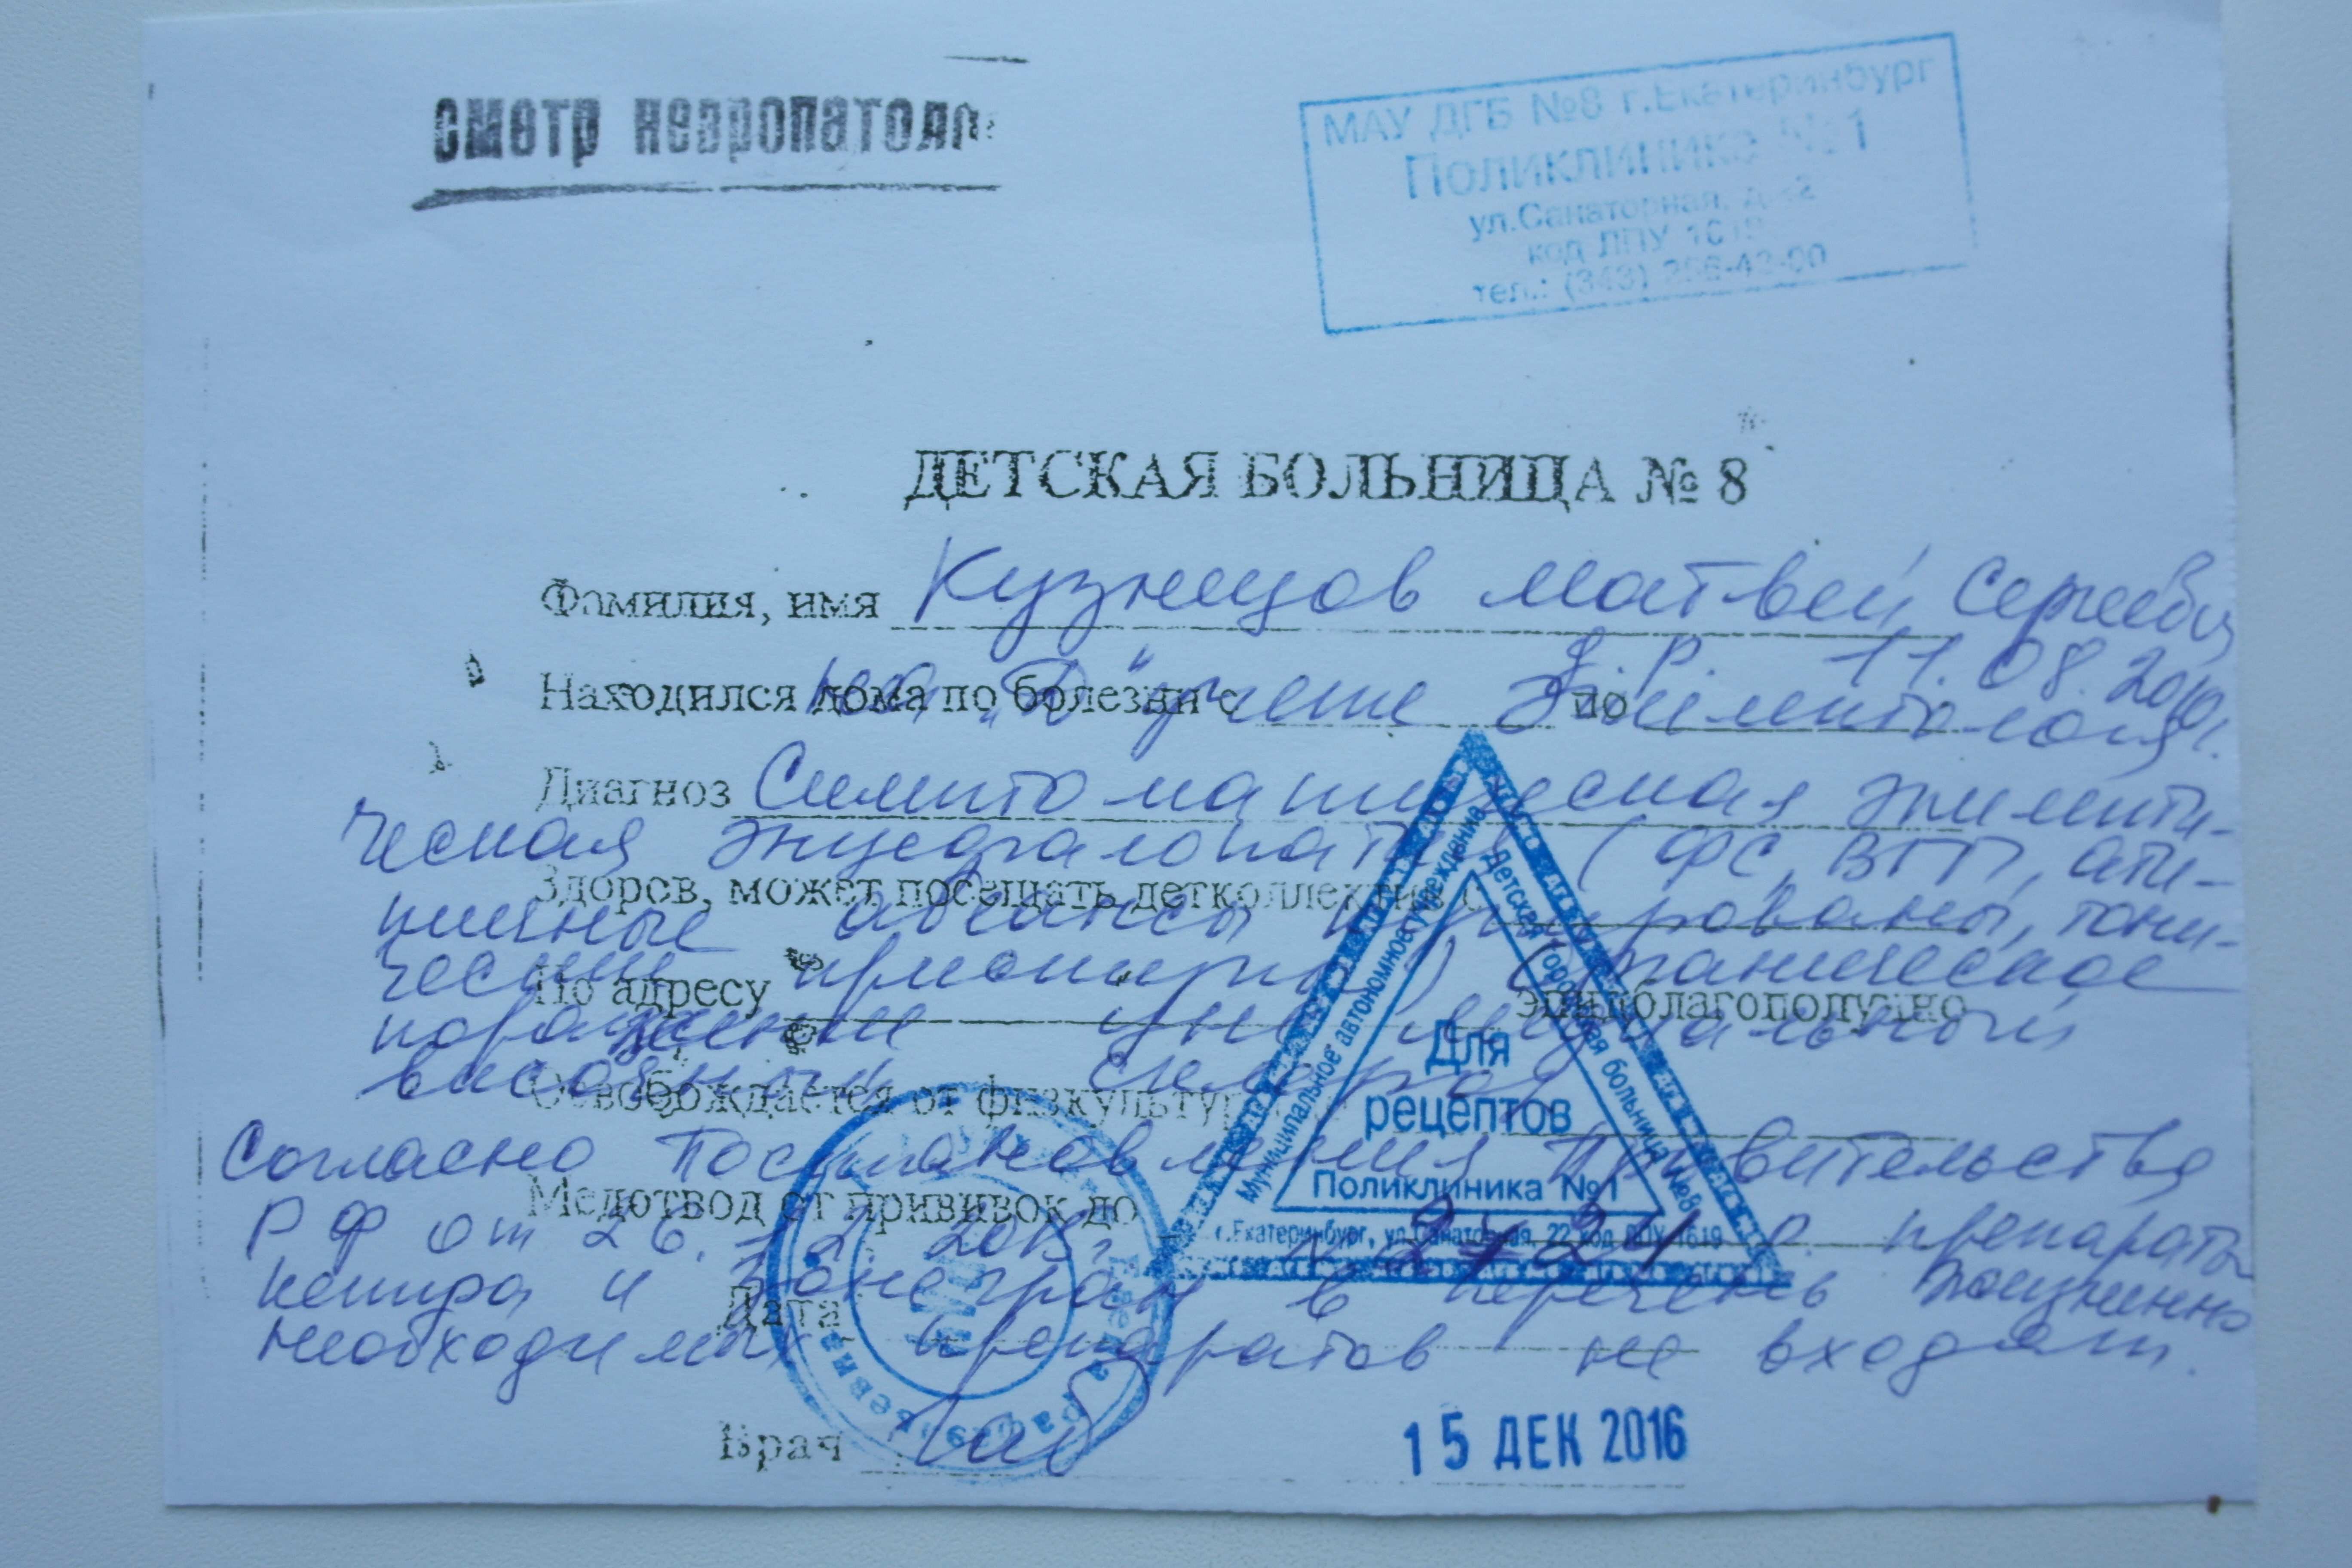 смотр невропатол
МАУ ДГБ №8 г.Екатеринбург
Поликлиника №1
ул.Санаторная,
код ЛПУ
тел.: (343)
ДЕТСКАЯ БОЛЬНИЦА № 8
Фамилия, имя Кузнецов Матвей Сергеевич
д. р. 11.08.2010г.
Находился дома по болезни с по
на "Д" учете эпилептолога
Диагноз Симптоматическая эпилепти-
ческая энцефалопатия (ФС, ВГП, ати-
Здоров, может посещать детколлектив с
пичные абсансы купированы, тони-
ческие приступы) органическое
По адресу эпидблагополучно
поражение медиальной
височной
Освобождается от физкультуры
Согласно Постановления Правительства
Медотвод от прививок до
РФ от 26.12.2015г. № 2724 р. препараты
кеппра и зонегран в перечень жизненно
Дата
необходимых препаратов не входят.
Врач
15 ДЕК 2016
Муниципальное автономное учреждение
Детская городская больница №8
Для
рецептов
Поликлиника №1
г.Екатеринбург, ул.Санаторная, 22 код ЛПУ 1619